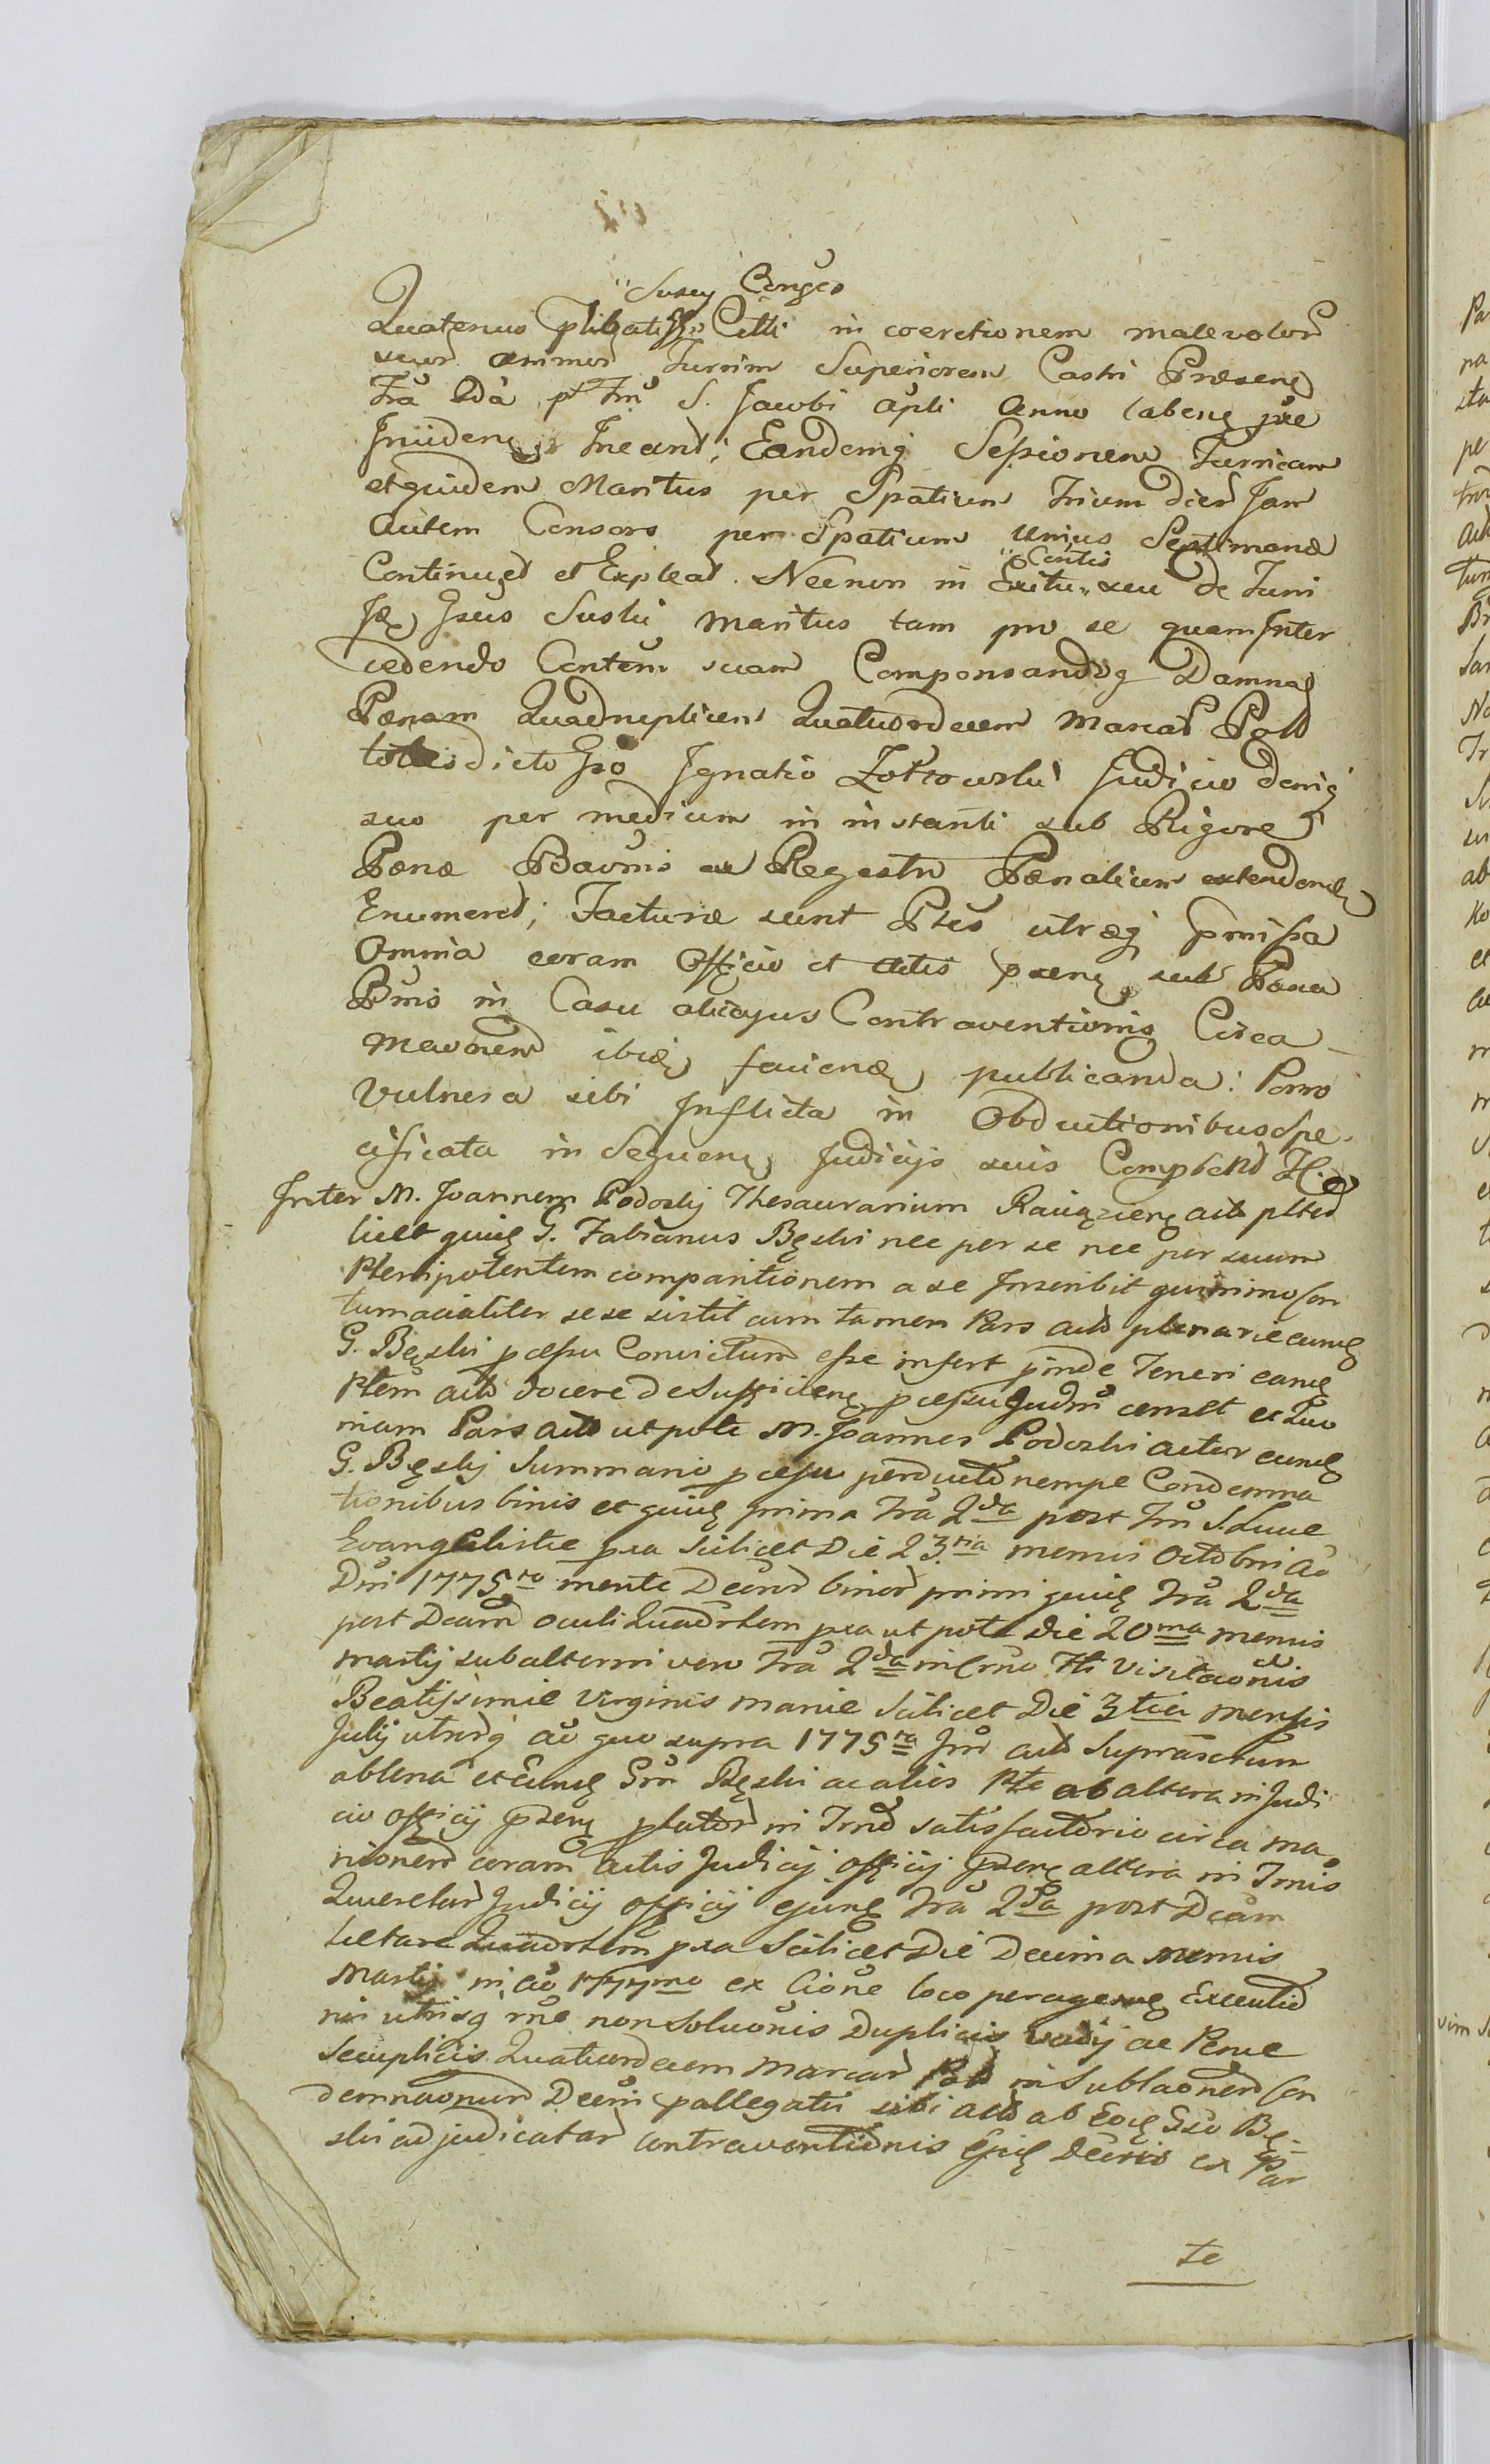 Suscy Conges
Quatenus Citti in coerctionem malevolor
suor animor Turrim Superiorem Castri Præsen
Fra 2da pt Fm S. Jacobi apli Anno labenę
Ineant; Eandemq Sessionem Turricam
etquidem Maritus per Spatium Trium dier Jam
autem Consors per Spatium unius Septimanæ
Contis
Continuet et Expleat. Necnon in Exitu seu de Turri
Gsus Suski Maritus tam pro se quam Inter
cedendo Contem suam Componsandoq Damna
Pænam Quadruplicem Quatuordecem Marcar Poll
toties dicto Gso Ignatio Judicio deniq
suo per medium in instanti sub Rigore
Pænæ Baonis ex Regestro Pænalium extendendę
Enumeret; Facturæ sunt Ptes utræq pmissa
Omnia coram Officio et Actis psenę sub Pæna
Bnis in Casu alicujus Contraventionis Circa
Meaonem ibię faciendę publicanda: Porro
Vulnera sibi Inflicta in Obductionibus Spe-
cificata in Sequenę Judicijs suis
Inter M. Joannem Podoski Thesaurarium act
licet quię G. Fabianus Bęski nec per se nec per suum
Plenipotentem comparitionem a se Inscribit quinimo Con
tumacialiter sese sistit cum tamen Pars act plenarie eumę
G. Bęski pcessu Convictum esse infert pinde Teneri eamę
Ptem act docere de Sufficienę pcessu Judm censet et Quo
niam Pars act utpote M. Joannes Podoski actor eumę
G. Bęskij Summario pcessu perductu nempe Condemna
tionibus binis et quię prima Fra 2da post Fm S. Lucæ
Evangelistæ pxa scilicet Die 23tia mensis Octobris Ao
Dni 1775to mente Decror binor primi quię Fra 2da
post Dcam Oculi Quadrlem pxa ut pote die 20ma mensis
Martij subalterni vero Fra 2da in Crno Fti Visitaonis
Beatissimæ Virginis Mariæ scilicet Die 3tia Mensis
Julij utrorq ao quo supra 1775to Jm act Supra
obtena et Eumę Gsm Bęski ac alios Pte ab altera in Judi
cio officij psenę platar in Trno satisfactorio circa Ma
nionem coram actis Judicij officij psenę altera in Trnis
Querelar Judicij officij ejusę Fra 2da post Dcam
Lætare Quadrlem pxa scilicet Die Decima Mensis
Martij in Ao 1777mo ex Cione loco peragenę Executio
nis utrisq rne non Soluonis Duplicis Vadij ac Penæ
Sexuplicis Quatuordecem Marcar Pol in Sublaonem Con
demnaonum Decri pallegati sibi act ab Eoę Gso Bę-
ski adjudicatar Contraventionis Ejusę Decris ex Par
te